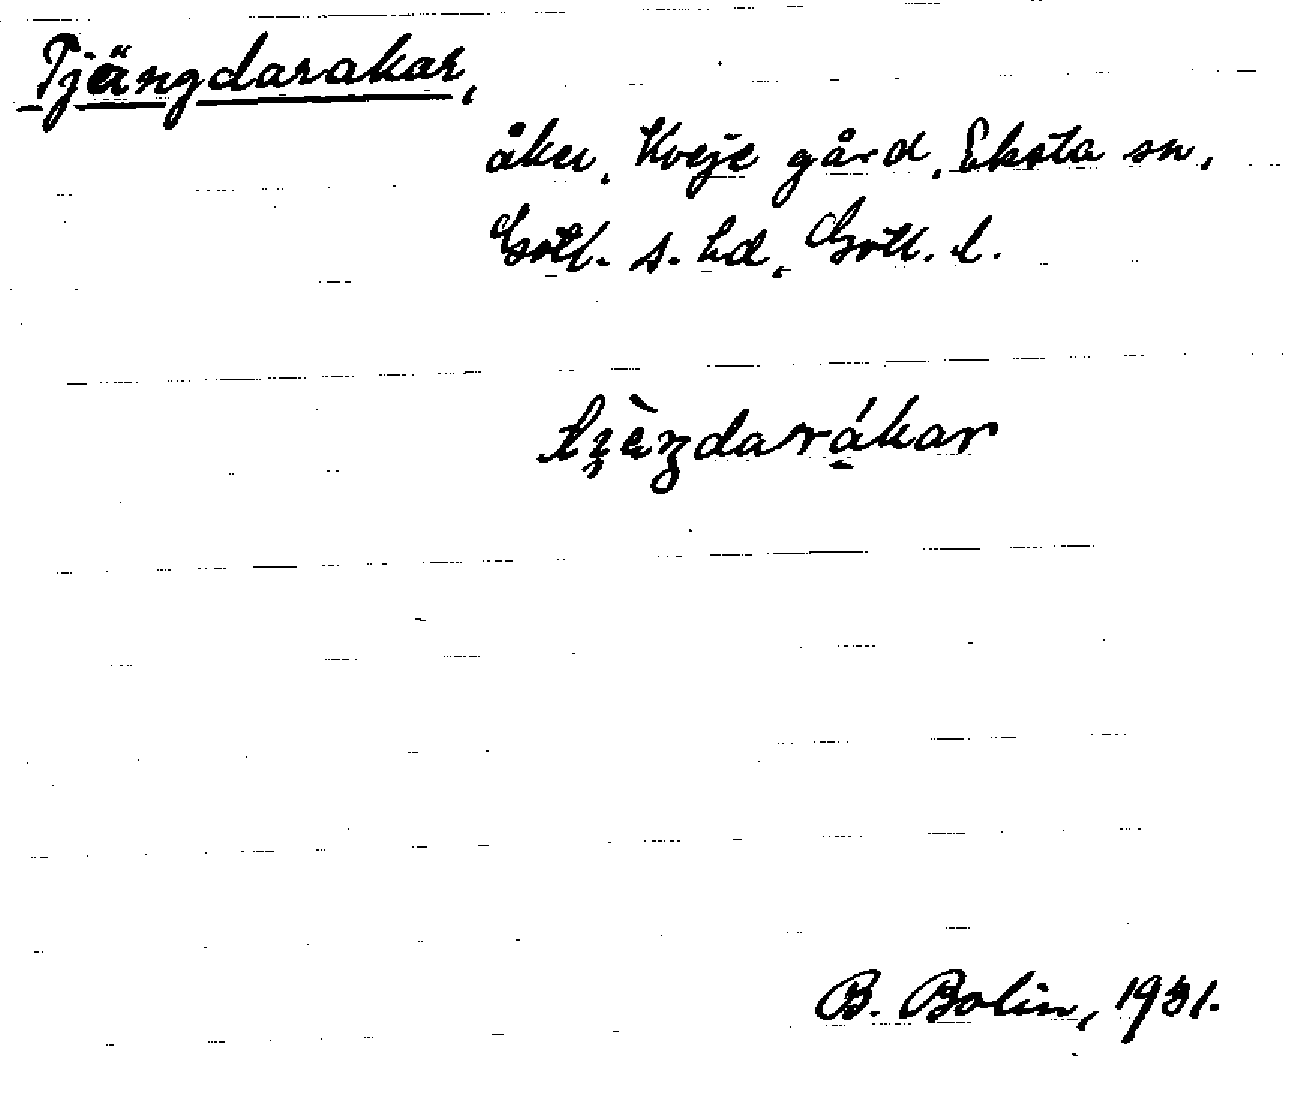 Tjängdarakar,
åker, Kveje gård, Eksta sn,
Gotl. s. hd, Gotl. l.
B. Bolin, 1931.